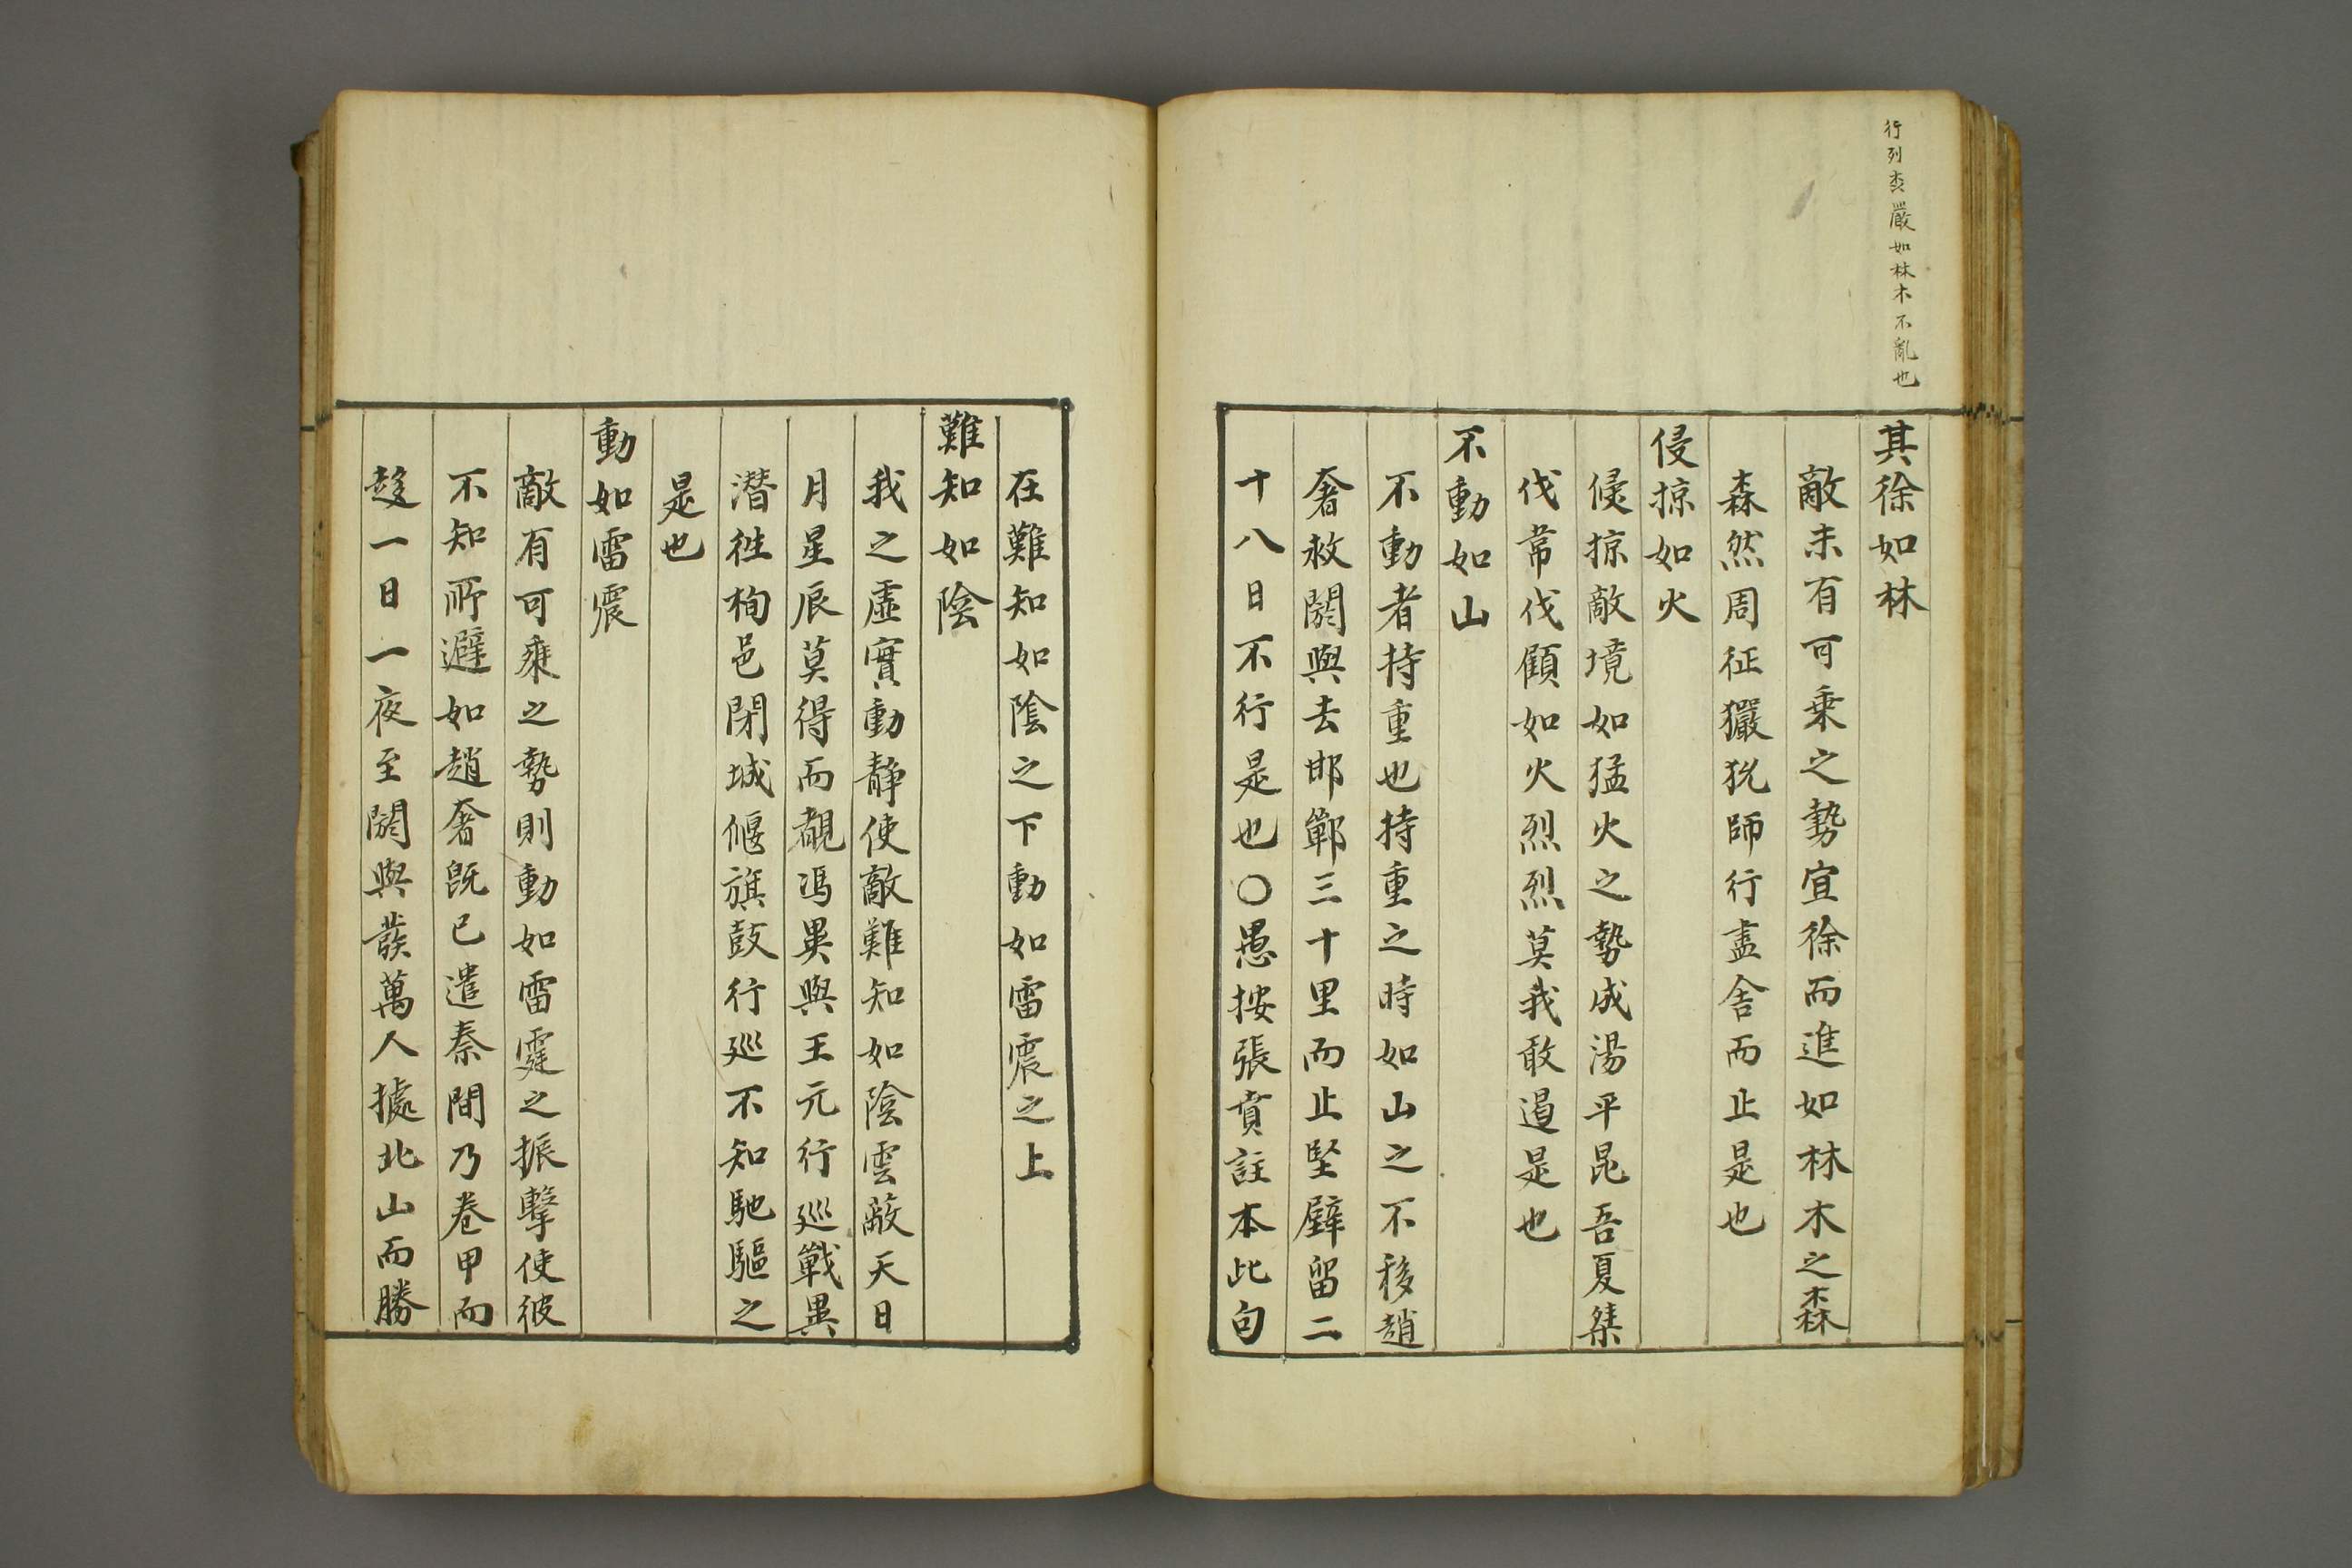 行列森嚴如林木不亂也
其徐如林
敵未有可乗之勢宜徐而進如林木之森
森然周征玁狁師行盡舎而止是也
侵掠如火
侵掠敵境如猛火之勢成湯平昆吾夏桀
伐韋伐顧如火烈烈莫我敢遏是也
不動如山
不動者持重也持重之時如山之不移趙
奢救閼與去邯鄲三十里而止堅壁留二
十八日不行是也〇愚按張賁註本此句
在難知如陰之下動如雷震之上
難知如陰
我之虛實動靜使敵難知如陰雲蔽天日
月星辰莫得而覩馮異與王元行巡戰異
潛徃栒邑閉城偃旗鼓行巡不知馳驅之
是也
動如雷震
敵有可乗之勢則動如雷霆之振擊使彼
不知所避如趙奢既已遣秦間乃巻甲而
趍一日一夜至閼與發萬人據北山而勝